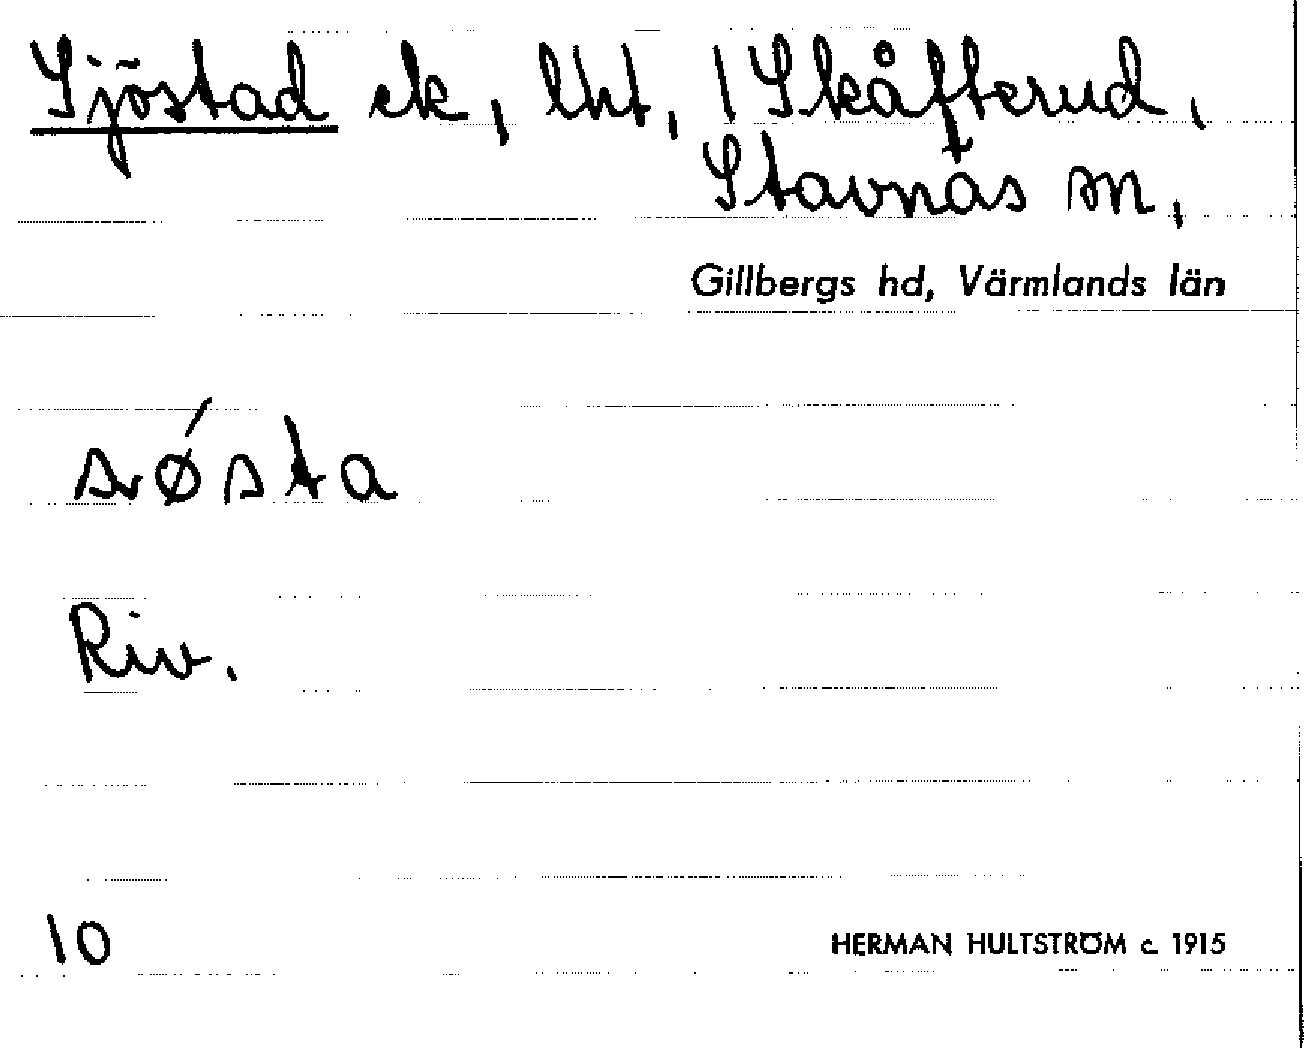 Sjöstad ek, lht, 1 Skåfterud,
Stavnäs sn,
Gillbergs hd, Värmlands län
Riv.
10
HERMAN HULTSTRÖM c. 1915